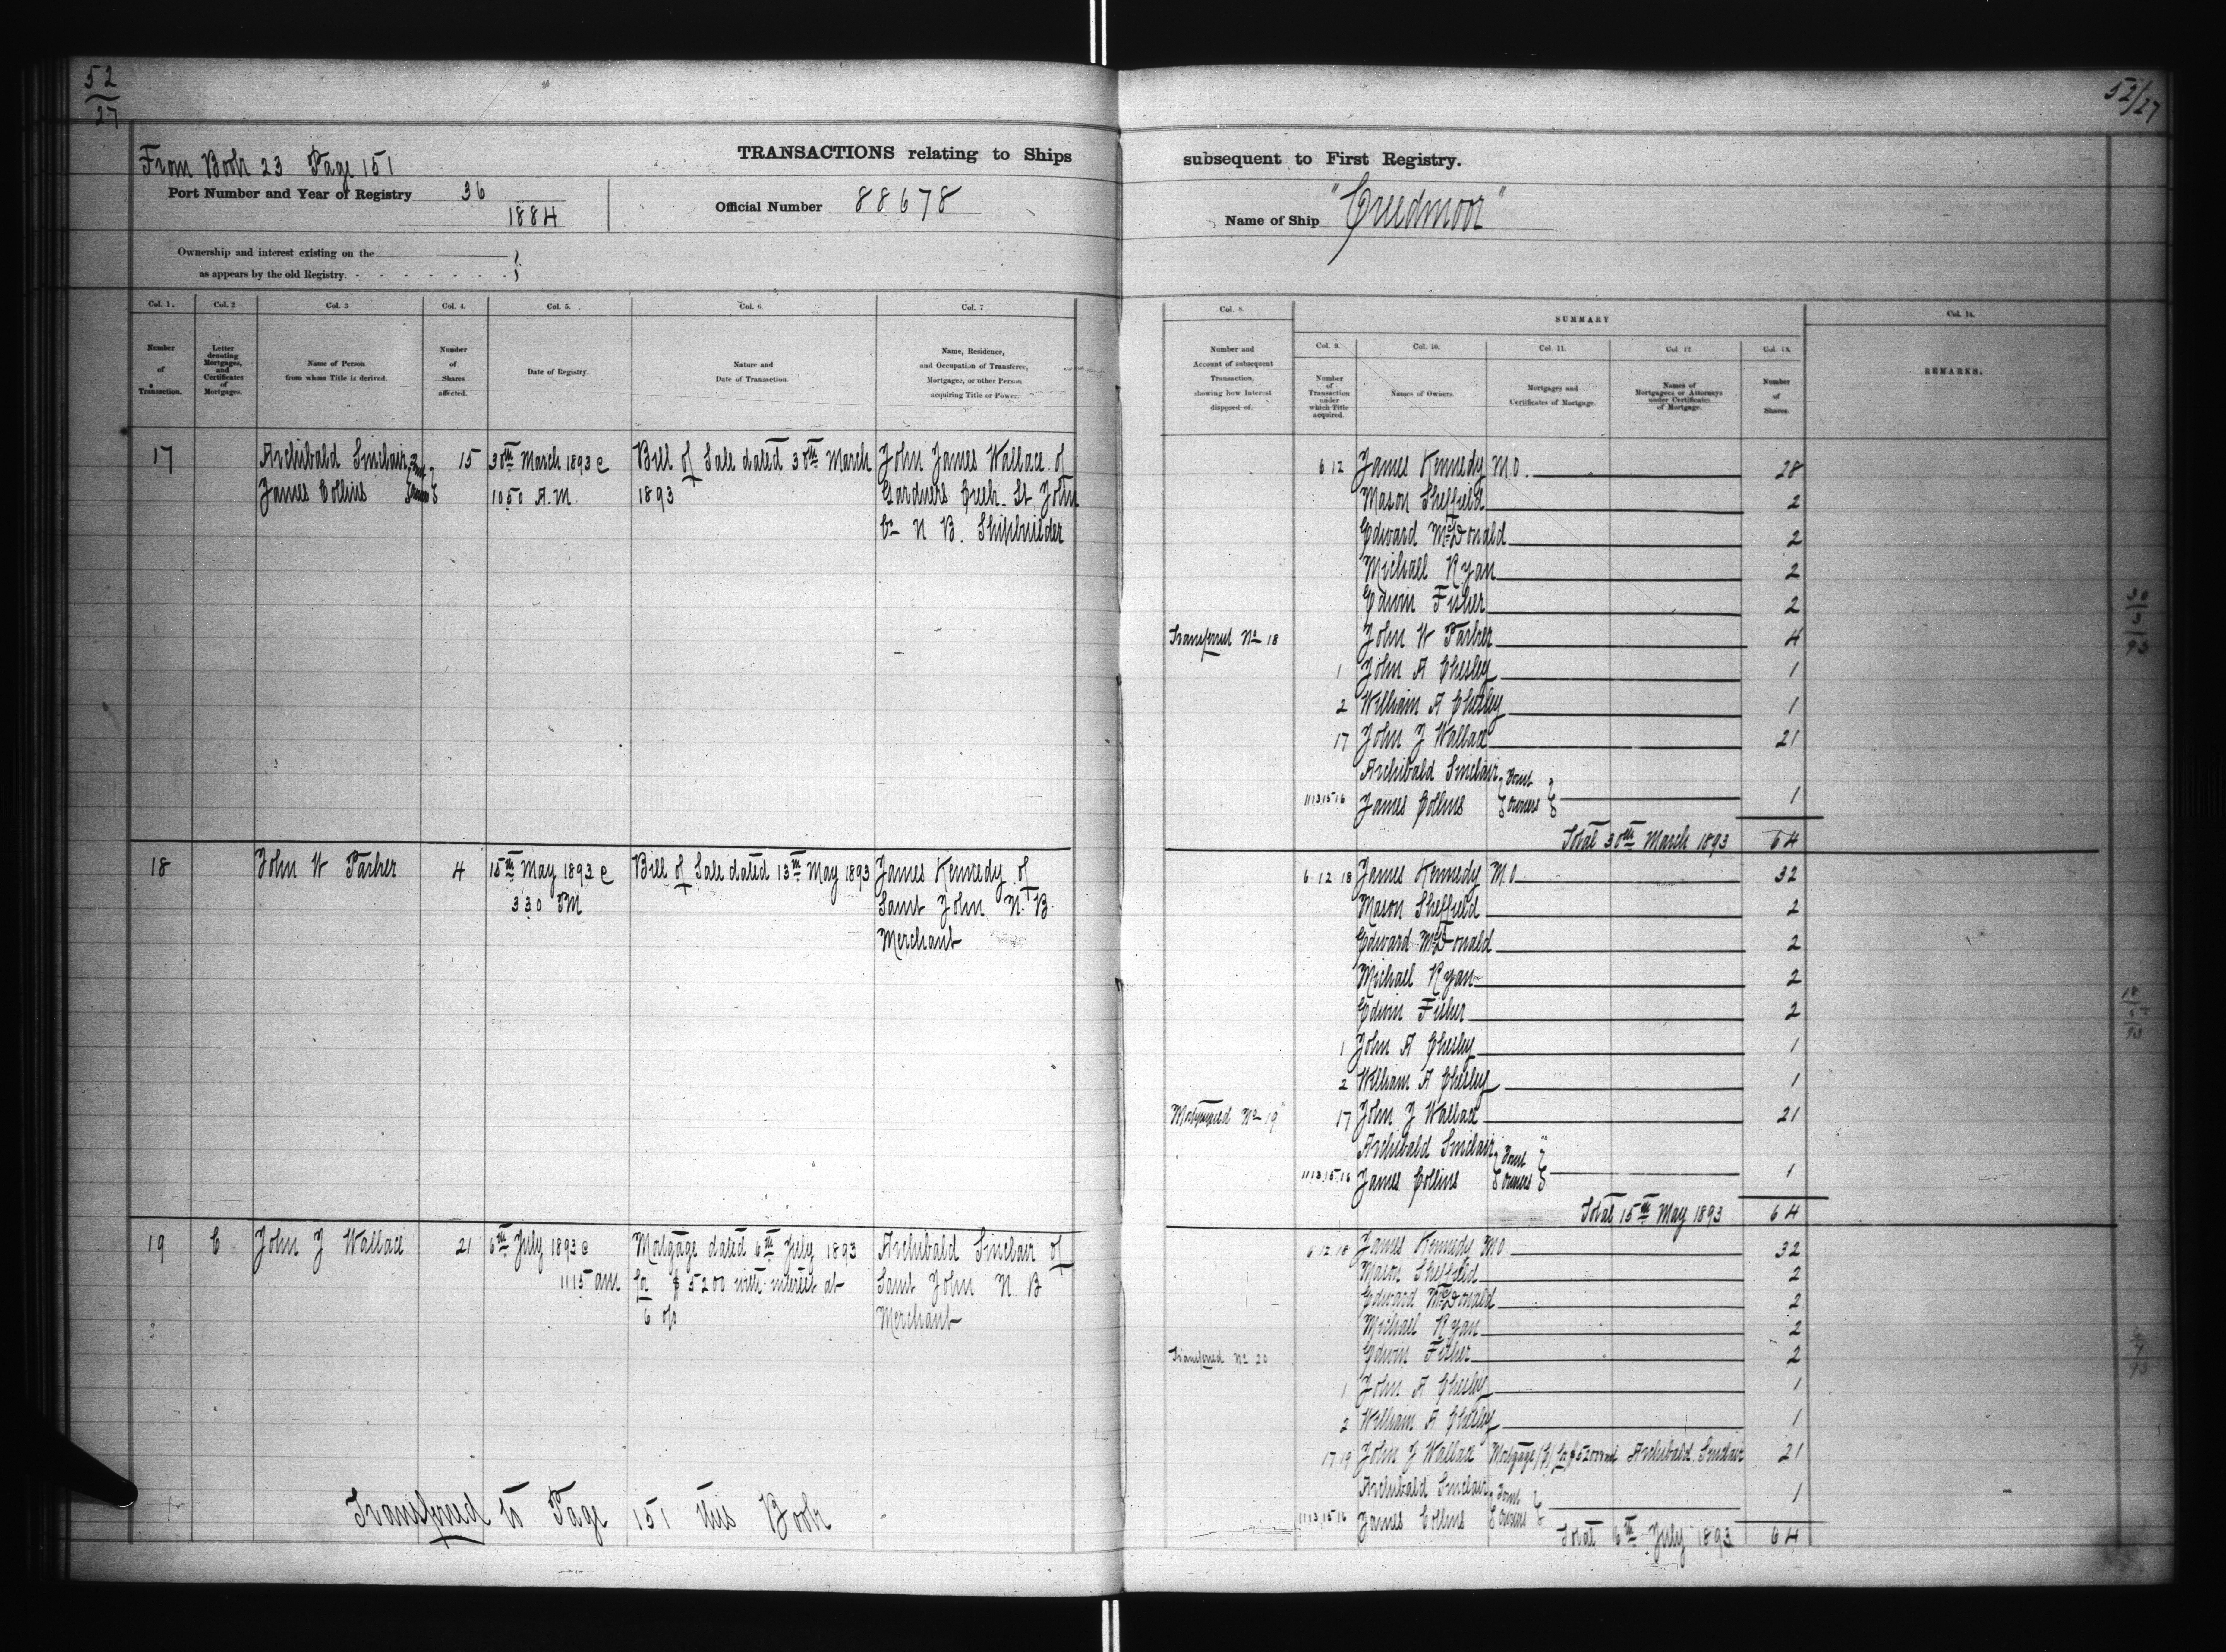 52
27
52/27
From Book 23 Page 151
TRANSACTIONS relating to Ships
subsequent to First Registry.
Port Number and Year of Registry 36
1884
Official Number 88678
Name of Ship "Creedmoor"
Ownership and interest existing on the
as appears by the old Registry.
Col. 1.
Col. 2
Col. 3
Col. 4.
Col. 5.
Col. 6.
Col. 7
Number
of
Transaction.
Letter
denoting
Mortgages,
and
Certificates
of
Mortgages.
Name of Person
from whom Title is derived.
Number
of
Shares
affected.
Date of Registry.
Nature and
Date of Transaction.
Name, Residence,
and Occupation of Transferee,
Mortgagee, or other Person
acquiring Title or Power.
Col. 8.
Number and
Account of subsequent
Transaction,
showing how Interest
disposed of.
SUMMARY
Col. 9.
Col. 10.
Col. 11.
Col. 12
Col. 13.
Number
of
Transaction
under
which Title
acquired.
Names of Owners.
Mortgages and
Certificates of Mortgage.
Names of
Mortgagees or Attorneys
under Certificates
of Mortgage.
Number
of
Shares.
Col. 14.
REMARKS.
17 Archibald Sinclair 15 30th March 1893 @ Bill of Sale dated 30th March John James Wallace of
James Collins 10 50 A.M. 1893 Gardners Creek St John
Co N B. Shipbuilder
6 12 James Kennedy M.O. 28
Mason Sheffield 2
Edward McDonald 2
Michael Ryan 2
Edwin Fisher 2
Transferred No 18 John W Parker 4
1 John A Chesley 1
2 William A Chesley 1
17 John J Wallace 21
Archibald Sinclair Joint
11 13 15 16 James Collins Owners 1
Total 30th March 1893 64
18 John W Parker 4 15th May 1893 @ Bill of Sale dated 13th May 1893 James Kennedy of
3 30 PM Saint John N. B.
Merchant
6 12 18 James Kennedy M.O 32
Mason Sheffield 2
Edward McDonald 2
Michael Ryan 2
Edwin Fisher 2
1 John A Chesley 1
2 William A Chesley 1
Mortgaged No 19 17 John J Wallace 21
Archibald Sinclair Joint
11 13 15 16 James Collins Owners 1
Total 15th May 1893 64
19 C John J Wallace 21 6th July 1893 @ Mortgage dated 6th July 1893 Archibald Sinclair of
11 15 am for $5200 with interest at Saint John N. B
6 o/o Merchant
6 12 18 James Kennedy MO 32
Mason Sheffield 2
Edward McDonald 2
Michael Ryan 2
Transferred No 20 Edwin Fisher 2
1 John A Chesley 1
2 William A Chesley 1
17 19 John J Wallace Mortgage (C) for $5200 Archibald Sinclair 21
Archibald Sinclair Joint
11 13 15 16 James Collins Owners 1
Total 6th July 1893 64
Transferred to Page 151 this Book